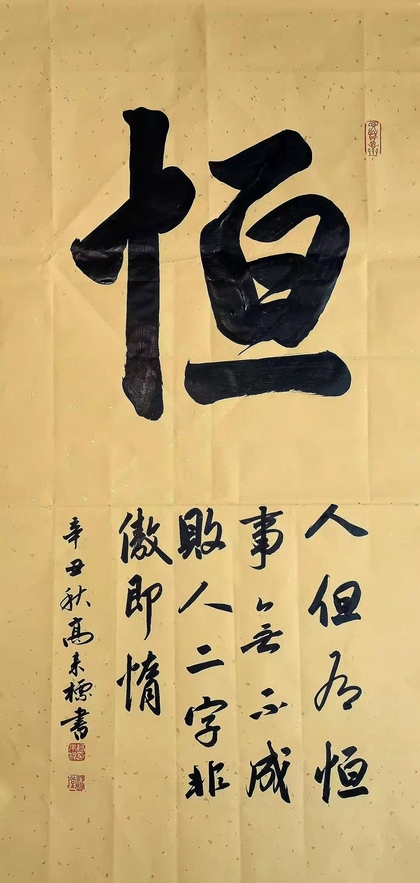 恒
人但有恒
事無不成
敗人二字非
傲即惰
辛丑秋高来標書